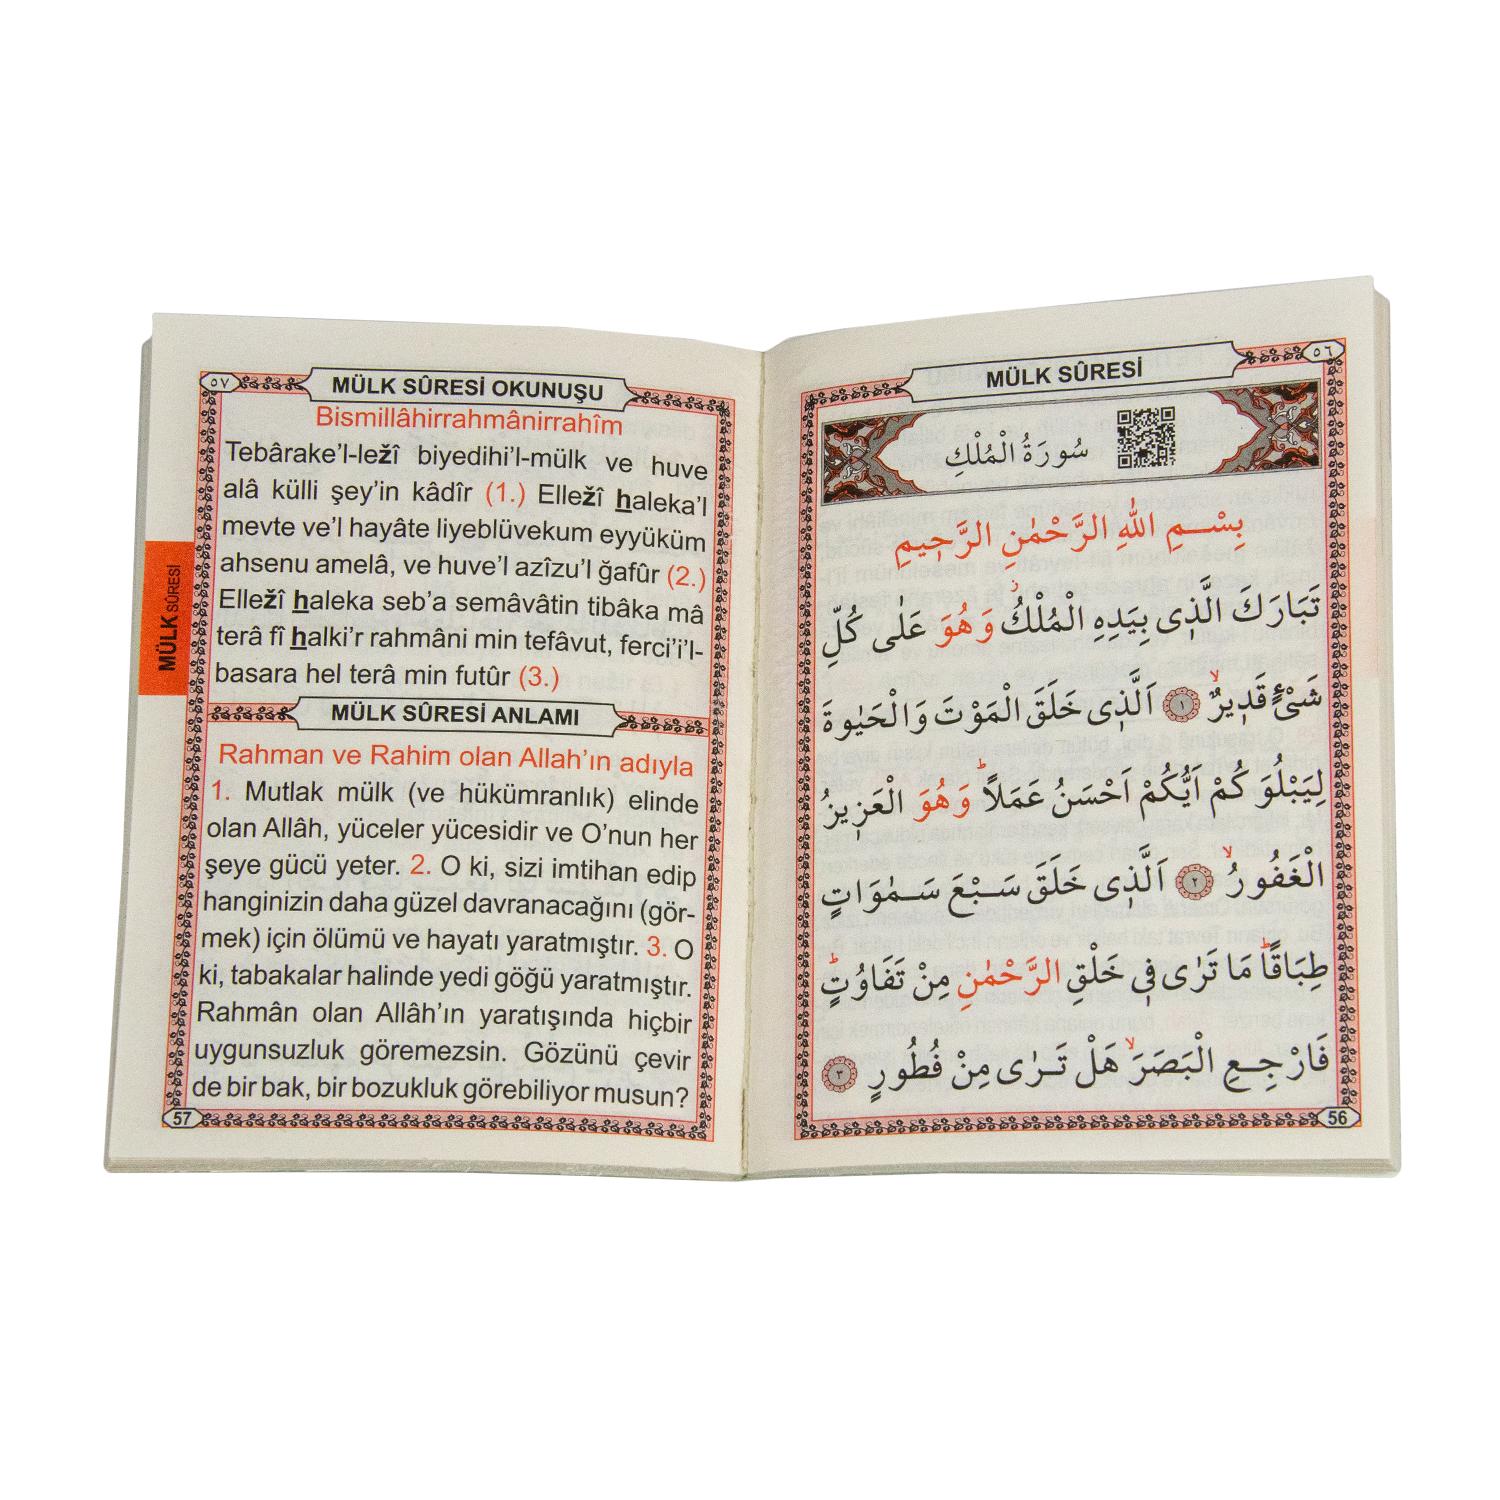 ٥٦
MÜLK SÛRESİ
سُورَةُ الْمُلْكِ
بِسْــمِ اللّٰهِ الرَّحْمٰنِ الرَّح۪يمِ
تَبَارَكَ الَّذ۪ى بِيَدِهِ الْمُلْكُۘ وَهُوَ عَلٰى كُلِّ
شَىْءٍ قَد۪يرٌۙ ١ اَلَّذ۪ى خَلَقَ الْمَوْتَ وَالْحَيٰوةَ
لِيَبْلُوَ كُمْ اَيُّكُمْ اَحْسَنُ عَمَلاًۜ وَهُوَ الْعَز۪يزُ
الْغَفُورُۙ ٢ اَلَّذ۪ى خَلَقَ سَـبْعَ سَـمٰوَاتٍ
طِبَاقًاۜ مَا تَرٰى ف۪ى خَلْقِ الرَّحْمٰنِ مِنْ تَفَاوُتٍۜ
فَارْجِـعِ الْبَصَرَۙ هَلْ تَـرٰى مِنْ فُطُورٍ ٣
56
٥٧
MÜLK SÛRESİ OKUNUŞU
Bismillâhirrahmânirrahîm
Tebârake’l-ležî biyedihi’l-mülk ve huve
alâ külli şey’in kâdîr (1.) Elležî haleka’l
mevte ve’l hayâte liyeblüvekum eyyüküm
ahsenu amelâ, ve huve’l azîzu’l ğafûr (2.)
Elležî haleka seb’a semâvâtin tibâka mâ
terâ fî halki’r rahmâni min tefâvut, ferci’i’l-
basara hel terâ min futûr (3.)
MÜLK SÛRESİ
MÜLK SÛRESİ ANLAMI
Rahman ve Rahim olan Allah’ın adıyla
1. Mutlak mülk (ve hükümranlık) elinde
olan Allâh, yüceler yücesidir ve O’nun her
şeye gücü yeter. 2. O ki, sizi imtihan edip
hanginizin daha güzel davranacağını (gör-
mek) için ölümü ve hayatı yaratmıştır. 3. O
ki, tabakalar halinde yedi göğü yaratmıştır.
Rahmân olan Allâh’ın yaratışında hiçbir
uygunsuzluk göremezsin. Gözünü çevir
de bir bak, bir bozukluk görebiliyor musun?
57